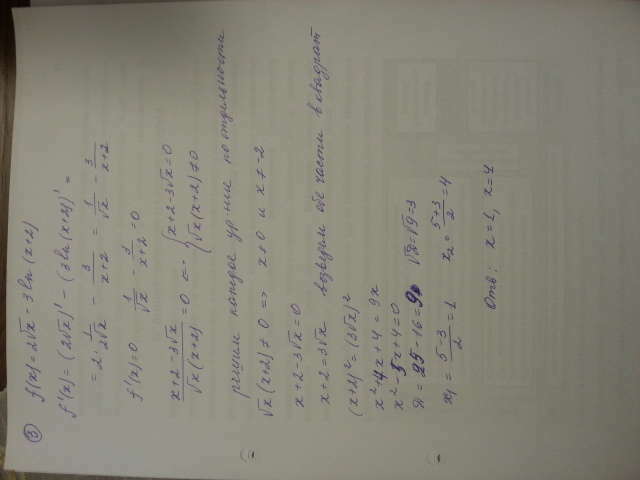 ③ f(x) = 2√x - 3 ln(x+2)
f'(x) = (2√x)' - (3 ln(x+2))' =
= 2·1/(2√x) - 3/(x+2) = 1/√x - 3/(x+2)
f'(x) = 0 1/√x - 3/(x+2) = 0
(x+2-3√x)/(√x(x+2)) = 0 <=> { x+2-3√x = 0
√x(x+2) ≠ 0
решим каждое ур-ние по отдильности
√x(x+2) ≠ 0 => x ≠ 0 и x ≠ -2
x+2-3√x = 0
x+2 = 3√x возведём обе части в квадрат
(x+2)² = (3√x)²
x²+4x+4 = 9x
x²-5x+4 = 0
D = 25-16 = 9 √D = √9 = 3
x₁ = (5-3)/2 = 1 x₂ = (5+3)/2 = 4
Отв: x = 1, x = 4